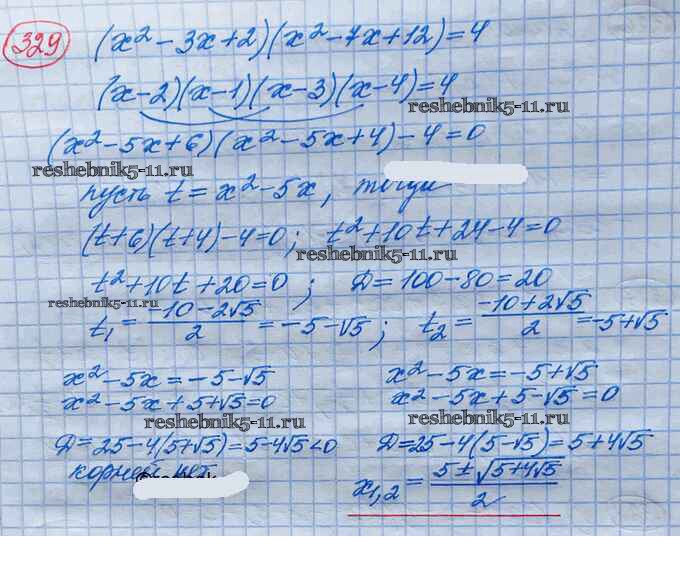 329
(x² - 3x + 2)(x² - 7x + 12) = 4
(x-2)(x-1)(x-3)(x-4) = 4
reshebnik5-11.ru
(x² - 5x + 6)(x² - 5x + 4) - 4 = 0
reshebnik5-11.ru
пусть t = x² - 5x, тогда
(t+6)(t+4) - 4 = 0; t² + 10t + 24 - 4 = 0
reshebnik5-11.ru
t² + 10t + 20 = 0; D = 100 - 80 = 20
reshebnik5-11.ru
t₁ = (-10 - 2√5)/2 = -5 - √5; t₂ = (-10 + 2√5)/2 = -5 + √5
x² - 5x = -5 - √5
x² - 5x + 5 + √5 = 0
D = 25 - 4(5 + √5) = 5 - 4√5 < 0
корней нет
x² - 5x = -5 + √5
x² - 5x + 5 - √5 = 0
reshebnik5-11.ru
D = 25 - 4(5 - √5) = 5 + 4√5
x₁,₂ = (5 ± √(5 + 4√5))/2